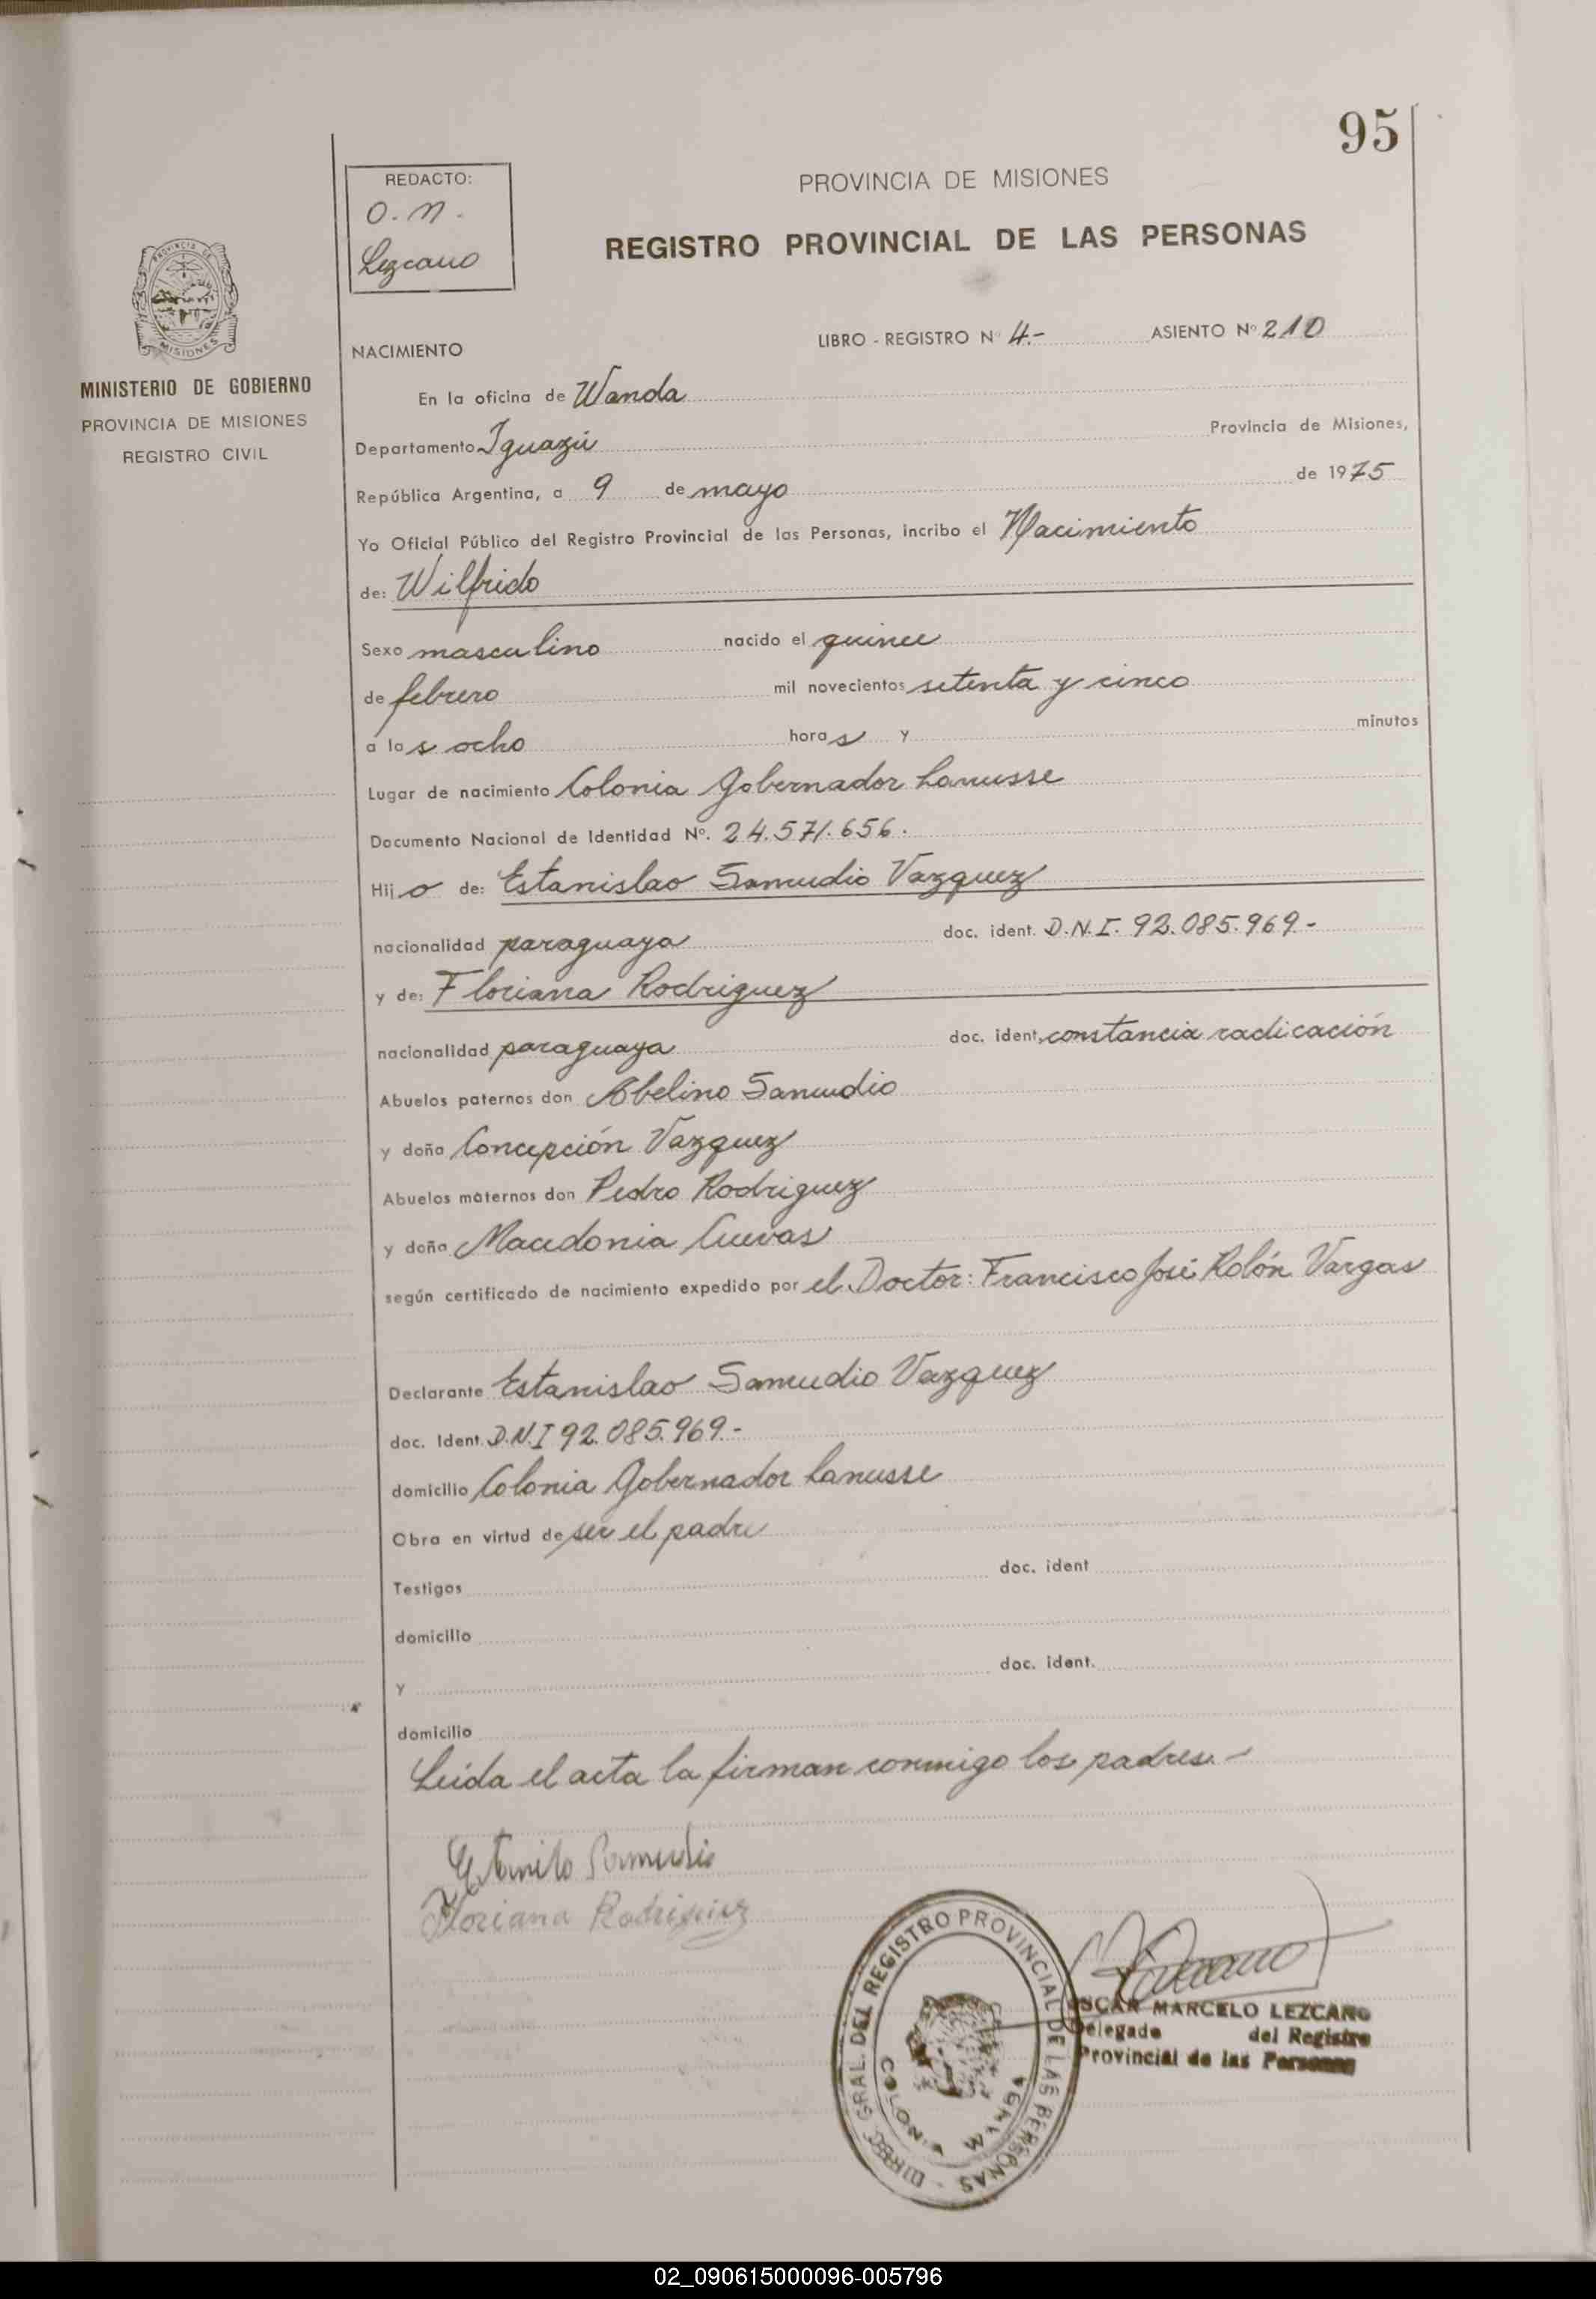 95
REDACTO:
O. M.
Lezcano
PROVINCIA DE MISIONES
REGISTRO PROVINCIAL DE LAS PERSONAS
PROVINCIA DE
MISIONES
MINISTERIO DE GOBIERNO
PROVINCIA DE MISIONES
REGISTRO CIVIL
NACIMIENTO
LIBRO - REGISTRO Nº 4.- ASIENTO Nº 210
En la oficina de Wanda
Departamento Iguazú Provincia de Misiones,
República Argentina, a 9 de mayo de 1975
Yo Oficial Público del Registro Provincial de las Personas, incribo el Nacimiento
de: Wilfrido
Sexo masculino nacido el quince
de febrero mil novecientos setenta y cinco
a las ocho horas y minutos
Lugar de nacimiento Colonia Gobernador Lanusse
Documento Nacional de Identidad Nº. 24.571.656.
Hijo de: Estanislao Samudio Vazquez
nacionalidad paraguaya doc. ident. D.N.I. 92.085.969-
y de: Floriana Rodriguez
nacionalidad paraguaya doc. ident. constancia radicación
Abuelos paternos don Abelino Samudio
y doña Concepción Vazquez
Abuelos maternos don Pedro Rodriguez
y doña Macedonia Cuevas
según certificado de nacimiento expedido por el Doctor: Francisco José Rolón Vargas
Declarante Estanislao Samudio Vazquez
doc. Ident. D.N.I 92.085.969.-
domicilio Colonia Gobernador Lanusse
Obra en virtud de ser el padre
Testigos doc. ident
domicilio
y doc. ident.
domicilio
Leída el acta la firman conmigo los padres.-
Samudio
Floriana Rodriguez
DIREC. GRAL. DEL REGISTRO PROVINCIAL DE LAS PERSONAS -
COLONIA WANDA
Lezcano
OSCAR MARCELO LEZCANO
Delegado del Registro
Provincial de las Personas
02_090615000096-005796